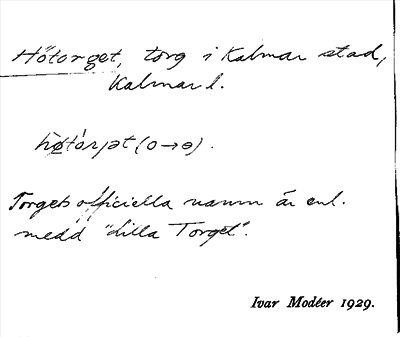 Hötorget, torg i Kalmar stad,
Kalmar l.
(o→ɵ).
Torgets officiella namn är enl.
medd "Lilla Torget".
Ivar Modéer 1929.